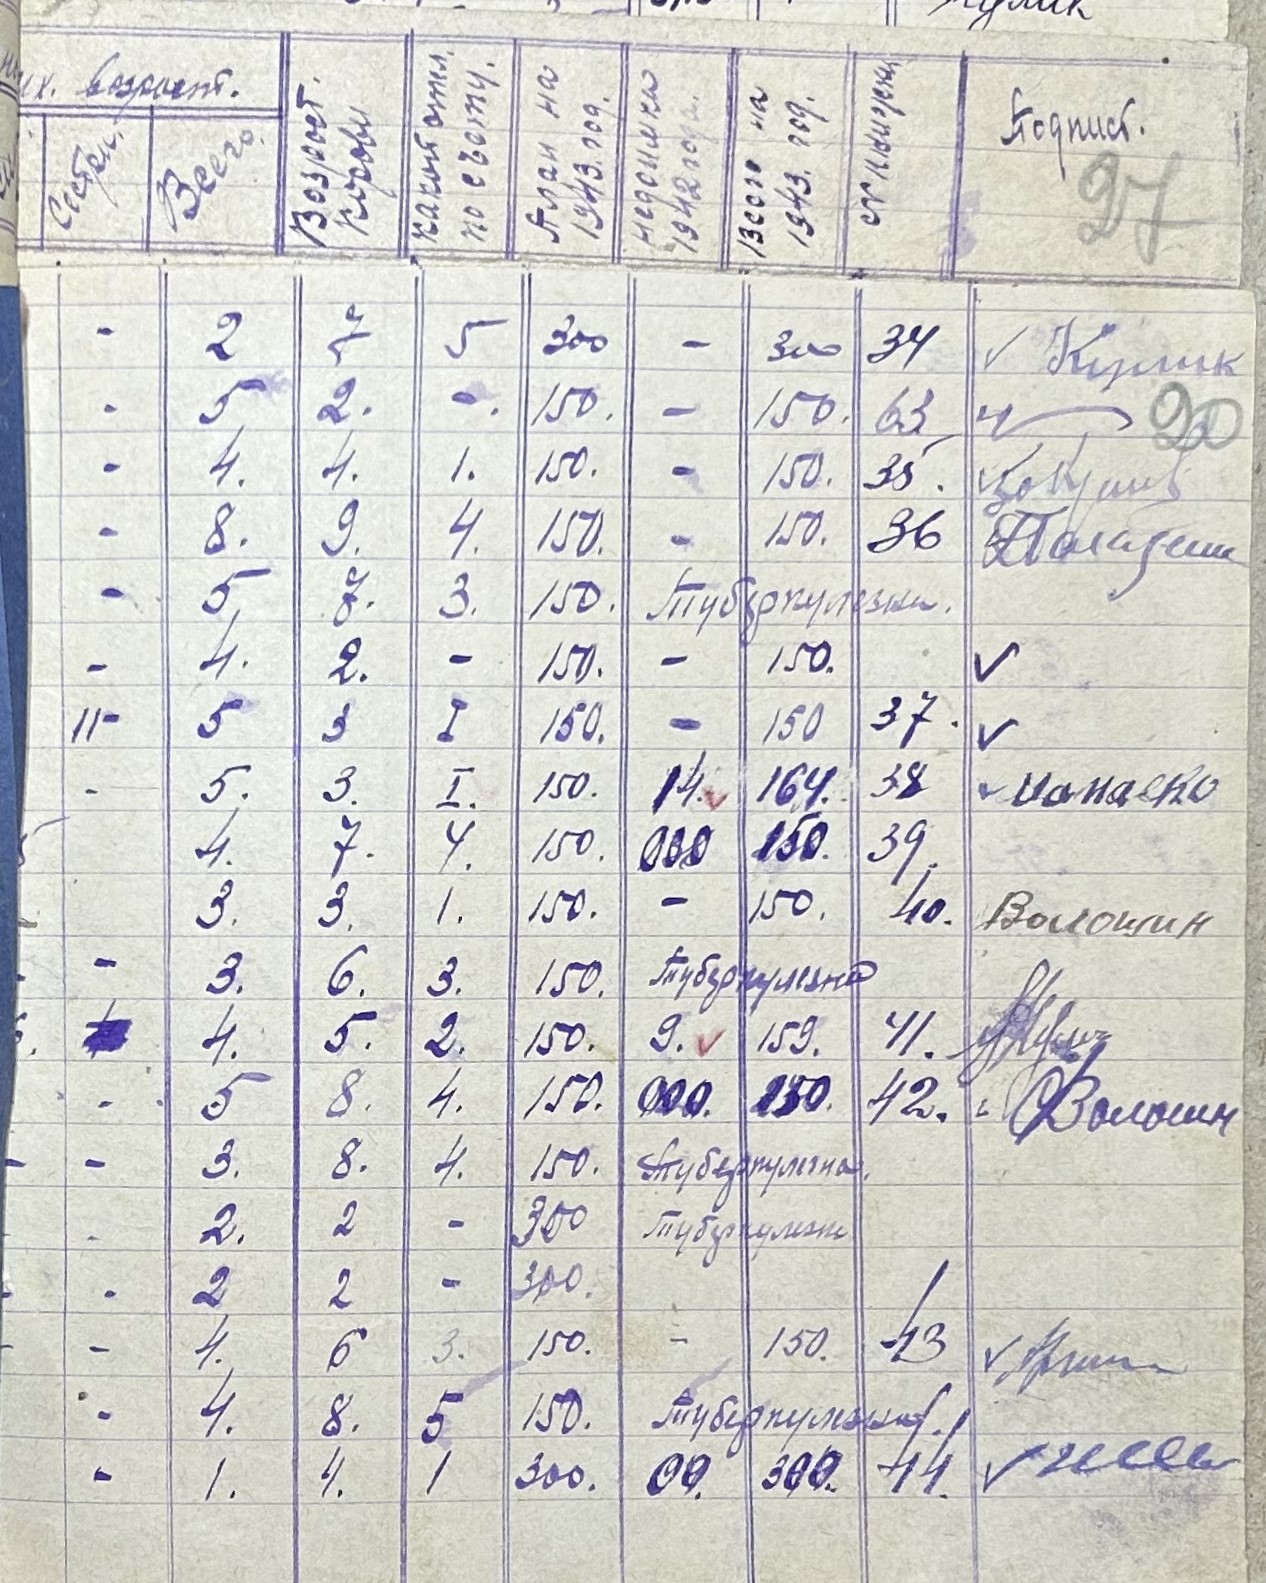 возраст.
Сестрен. Всего. Возраст. коровы какой отел. по счету. План на 1943. год. недоимка 1942 года. Всего на 1943. год. № книжки Подпист.
27
- 2 7 5 300 - 300 34 ✓
- 5 2. -. 150. - 150. 63 20
- 4. 4. 1. 150. - 150. 35.
- 8. 9. 4. 150. - 150. 36
- 5 8. 3. 150. Туберкулезная.
- 4. 2. - 150. - 150. ✓
11- 5 3 I 150. - 150 37. ✓
- 5. 3. I. 150. 14. ✓ 164. 38 Манаско
4. 7. 4. 150. 000 150. 39.
3. 3. 1. 150. - 150. 40. Волошин
- 3. 6. 3. 150. Туберкулезна
4. 5. 2. 150. 9. ✓ 159. 41.
- 5 8. 4. 150. 000. 150. 42. Волошин
- - 3. 8. 4. 150. Туберкулезна.
- 2. 2 - 300 Туберкулезн
- 2 2 - 300.
- - 4. 6 3. 150. - 150. 43 ✓
- 4. 8. 5 150. Туберкулезная.
- 1. 4. 1 300. 00. 300. 44. ✓